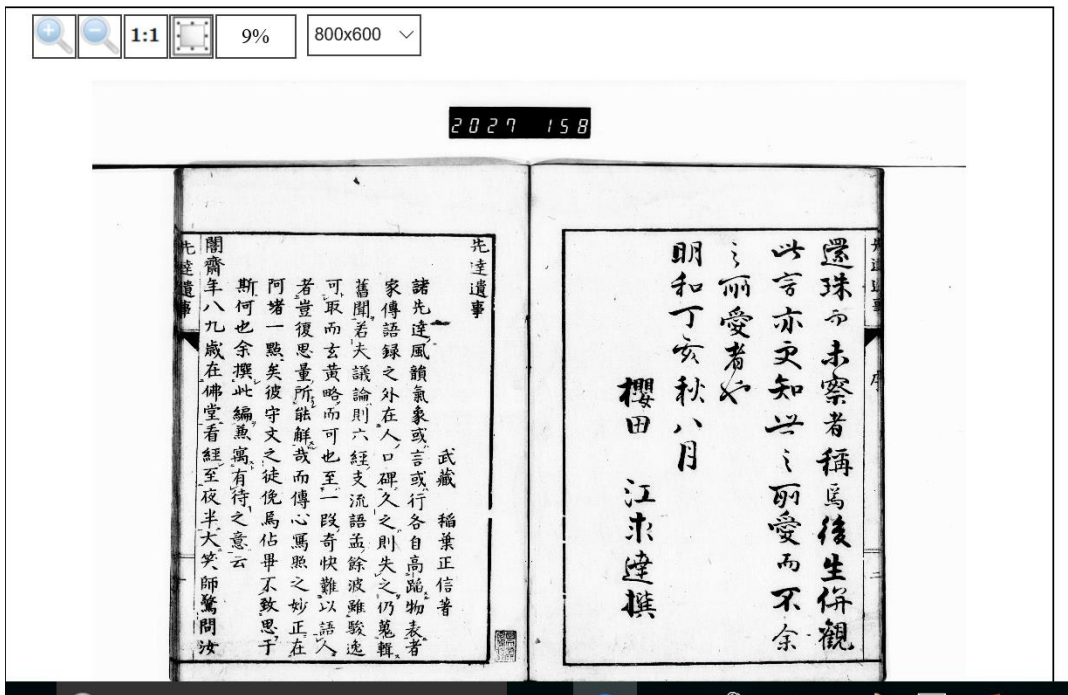 1:1
9%
800x600
2027 158
還珠而未察者稱焉後生併觀
此言亦更知世之所愛而不余
之所愛者也
明和丁亥秋八月
櫻田 江求達撰
先達遺事
武藏 稲葉正信著
諸先達風韻氣象或言或行各自高蹈物表者
家傳語録之外在人口碑久之則失之仍蒐輯
舊聞若夫議論則六經支流語孟餘波雖駿逸
可取而玄黄略而可也至一段奇快難以語人
者豈復思量所能解哉而傳心寫照之妙正在
阿堵一點矣彼守文之徒俛焉佔畢不致思于
斯何也余撰此編兼寓有待之意云
闇齋年八九歳在佛堂看經至夜半大笑師驚問汝
先達遺事